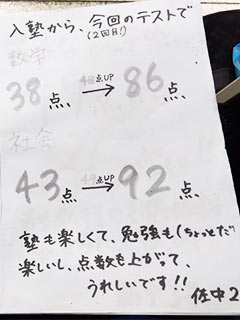 入塾から、今回のテストで
(2回目!)
数学
38点 48点UP → 86点
社会
43点 49点UP → 92点
塾も楽しくて、勉強も(ちょっとだけ
楽しいし、点数も上がって、
うれしいです!!
佐中2